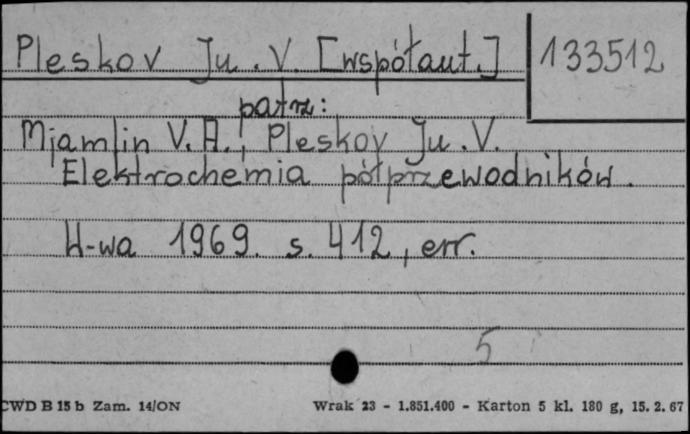 Pleskov Ju. V. [współaut.]
133512
patrz:
Mjamlin V. A., Pleskov Ju. V.
Elektrochemia półprzewodników.
W-wa 1969. s. 412, err.
5
CWD B 15 b Zam. 14/ON
Wrak 23 - 1.851.400 - Karton 5 kl. 180 g, 15. 2. 67